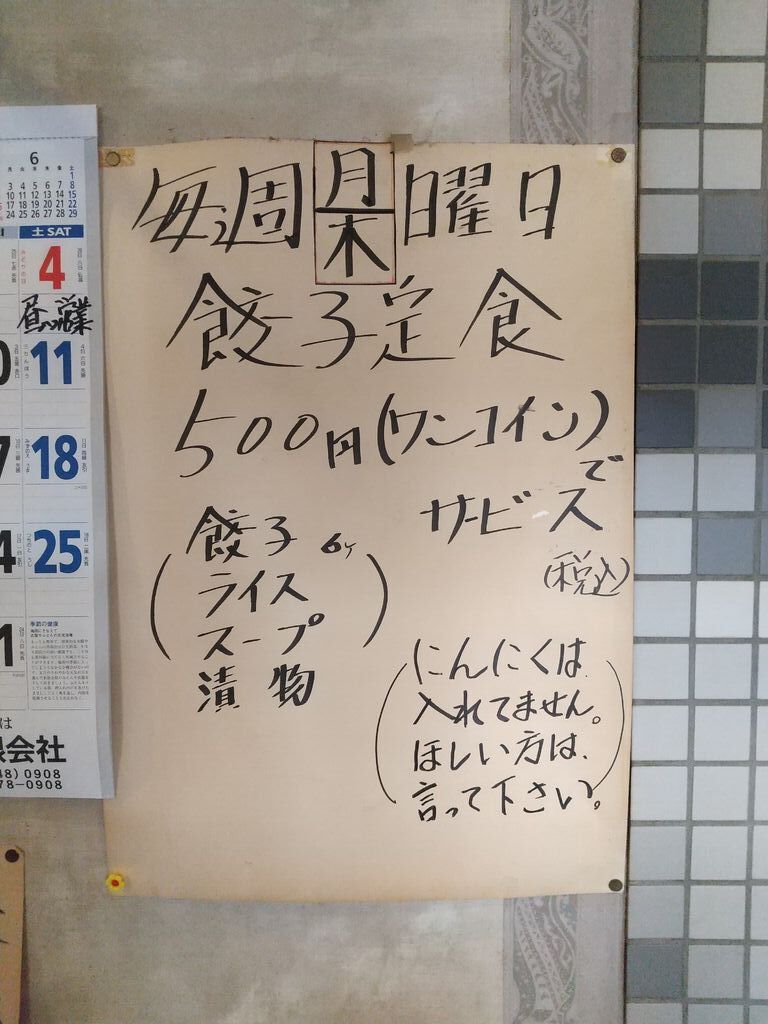 毎週月木曜日
餃子定食
500円(ワンコイン)で
サービス
(税込)
(餃子 6ケ
ライス
スープ
漬物)
(にんにくは
入れてません。
ほしい方は、
言って下さい。)
6
月 火 水 木 金 土
1
3 4 5 6 7 8
10 11 12 13 14 15
17 18 19 20 21 22
24 25 26 27 28 29
土 SAT
みどりの日
4
昼のみ営業
11
18
25
季節の健康
は
会社
48) 0908
78-0908